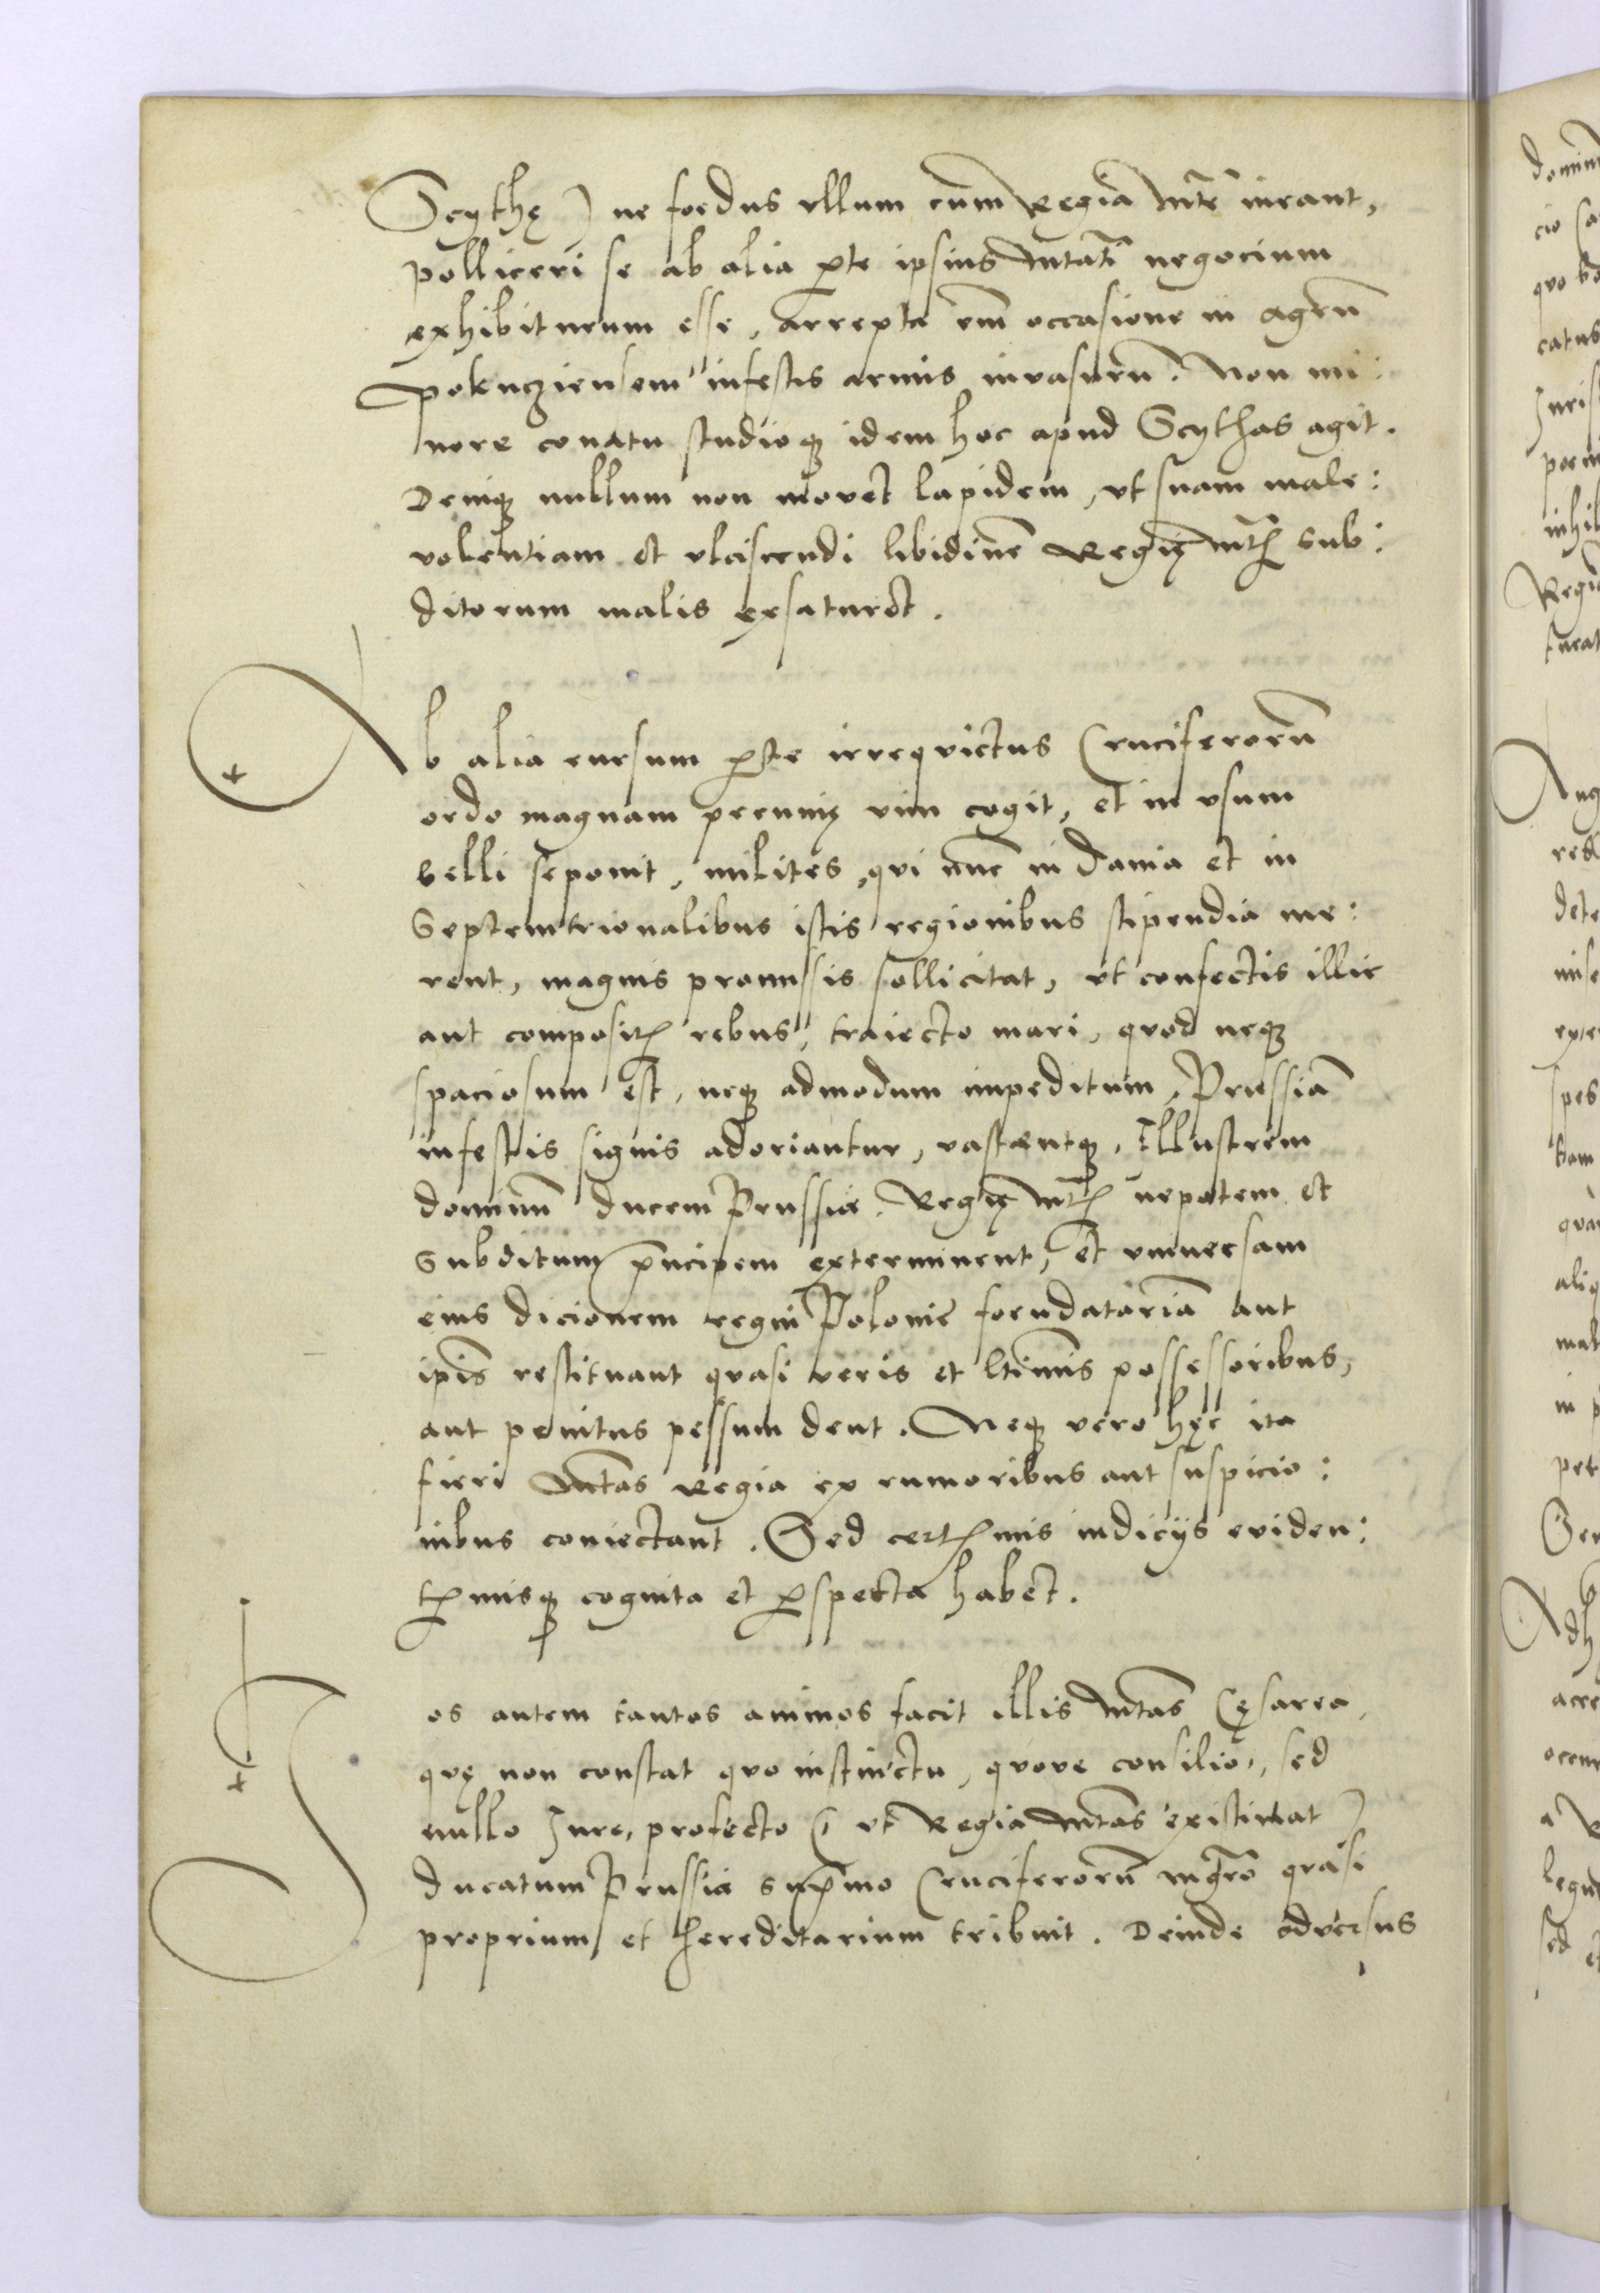 Scythę) ne foedus vllum cum Regia Mte ineant,
polliceri se ab alia pte ipsius Mtati negocium
exhibiturum esse, arrepta em occasione in agrũ
pokucziensem infestis armis inuasurũ. Non mi:
nore conatu studioq idem hoc apud Scythas agit.
Deniq nullum non movet lapidem, vt suam male:
volentiam et vlciscendi libidinẽ Regię Mtis sub:
ditorum malis exsaturet.
Ab alia rursum pte irrequietus Cruciferorũ
ordo magnam pecunię vim cogit, et in vsum
belli seponit, milites, qui nũc in Dania et in
Septemtrionalibus istis regionibus stipendia me:
rent, magnis promissis sollicitat, vt confectis illic
aut compositis rebus, traiecto mari, quod neq
spaciosum est, neq admodum impeditum, Prussiã
infestis signis adoriantur, vastentq, Illustrem
dominũ ducem Prussiæ, Regię Mtis nepotem et
subditum principem exterminent, et vniuersam
eius dicionem regni Poloniẽ foeudatariã aut
ipis restituant quasi veris et ltimis possessoribus,
aut penitus pessum dent. Neq vero hęc ita
fieri Mtas Regia ex rumoribus aut suspicio:
nibus coniectant. Sed certismis indicijs eviden:
tismisq cognita et pspecta habet.
Ios autem tantos animos facit illis Mtas Cęsarea,
quę non constat quo instinctu, quove consilio, sed
nullo Iure, profecto (vt Regia Mtas existimat)
ducatum Prussiæ supmo Cruciferorũ mgro quasi
proprium et hereditarium tribuit. Deinde adversus